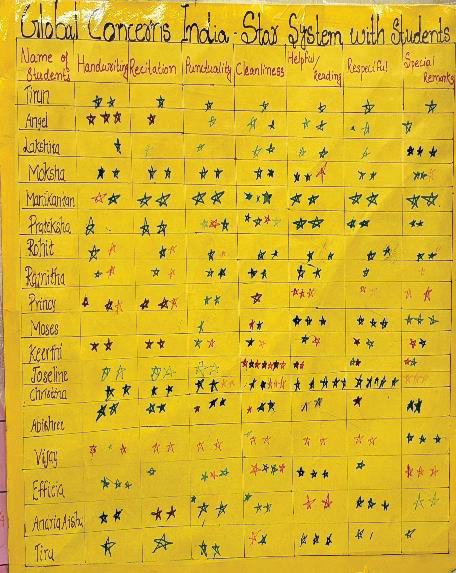 Global Concerns India - Star System with Students
Name of Students Handwriting Recitation Punctuality Cleanliness Helpful/ Leading Respectful Special Remarks
Angel
Lakshira
Moksha
Manikankan
Prateksha
Rohit
Ramitha
Princy
Moses
Keerthi
Joseline
Christina
Abishree
Vijay
Efficia
Tiru